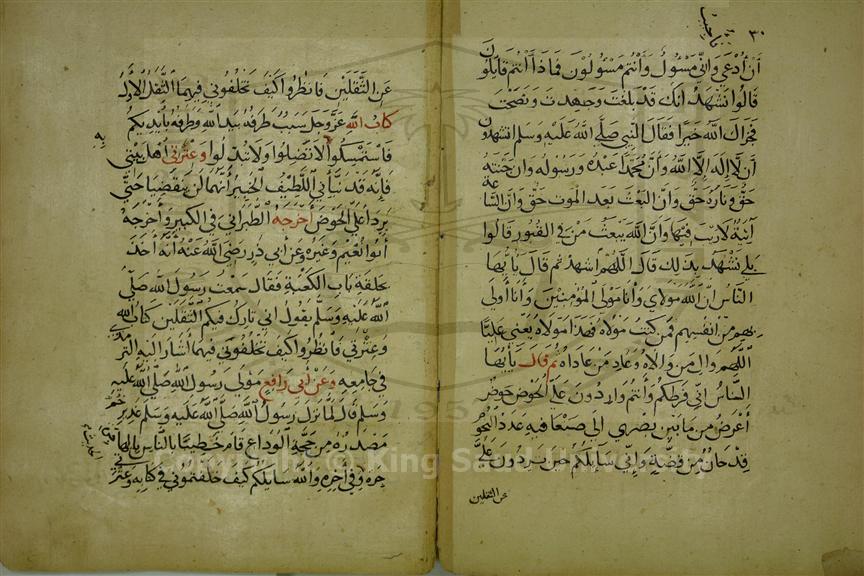 ٣٠
أن أدعى واني مسؤل وأنتم مسئولون فماذا أنتم قايلون
قالوا نشهد انك قد بلغت وجهدت ونصحت
فجزاك الله خيرا فقال النبي صلى الله عليه وسلم اتشهدون
أن لا إله إلا الله وأن محمدا عبده ورسوله وان جنته
حق وناره حق وان البعث بعد الموت حق وان الساعة
آتية لا ريب فيها وان الله يبعث من في القبور قالوا
بلى نشهد بذلك قال اللهم اشهد ثم قال يا يها
الناس ان الله مولاي وأنا مولى المؤمنين وأنا أولى
بهم من انفسهم فمن كنت مولاه فهذا مولاه يعني عليا
اللهم وال من والاه وعاد من عاداه ثم قال يا يها
الناس اني فرطكم وأنتم واردون على الحوض حوض
أعرض من ما بين بصرى الى صنعا فيه عدد النجو
قدحان من فضة وإني سايلكم حين تردون علي
عن الثقلين
عن الثقلين فانظروا كيف تخلفوني فيهما الثقل الأكبر
كتاب الله عز وجل سبب طرفه بيد الله وطرفه بأيديكم
فاستمسكوا به لا تضلوا ولا تبدلوا وعترتي أهل بيتي
فإنه قد نبأني اللطيف الخبير أنهما لن ينقضيا حتى
يردا علي الحوض أخرجه الطبراني في الكبير وأخرجه
أبو نعيم وغيره وعن أبي ذر رضى الله عنه أنه أخذ
بحلقة باب الكعبة فقال سمعت رسول الله صلى
الله عليه وسلم يقول اني تارك فيكم الثقلين كتاب الله
وعترتي فانظروا كيف تخلفوني فيهما أشار اليه الترمذي
في جامعه وعن أبي رافع مولى رسول الله صلى الله عليه
وسلم قال لما نزل رسول الله صلى الله عليه وسلم غدير خم
مصدره من حجة الوداع قام خطيبا بالناس بالها
جرة وفي آخره والله سايلكم كيف خلفتموني في كتابه وعتر
Copyright © King Saud University
1957